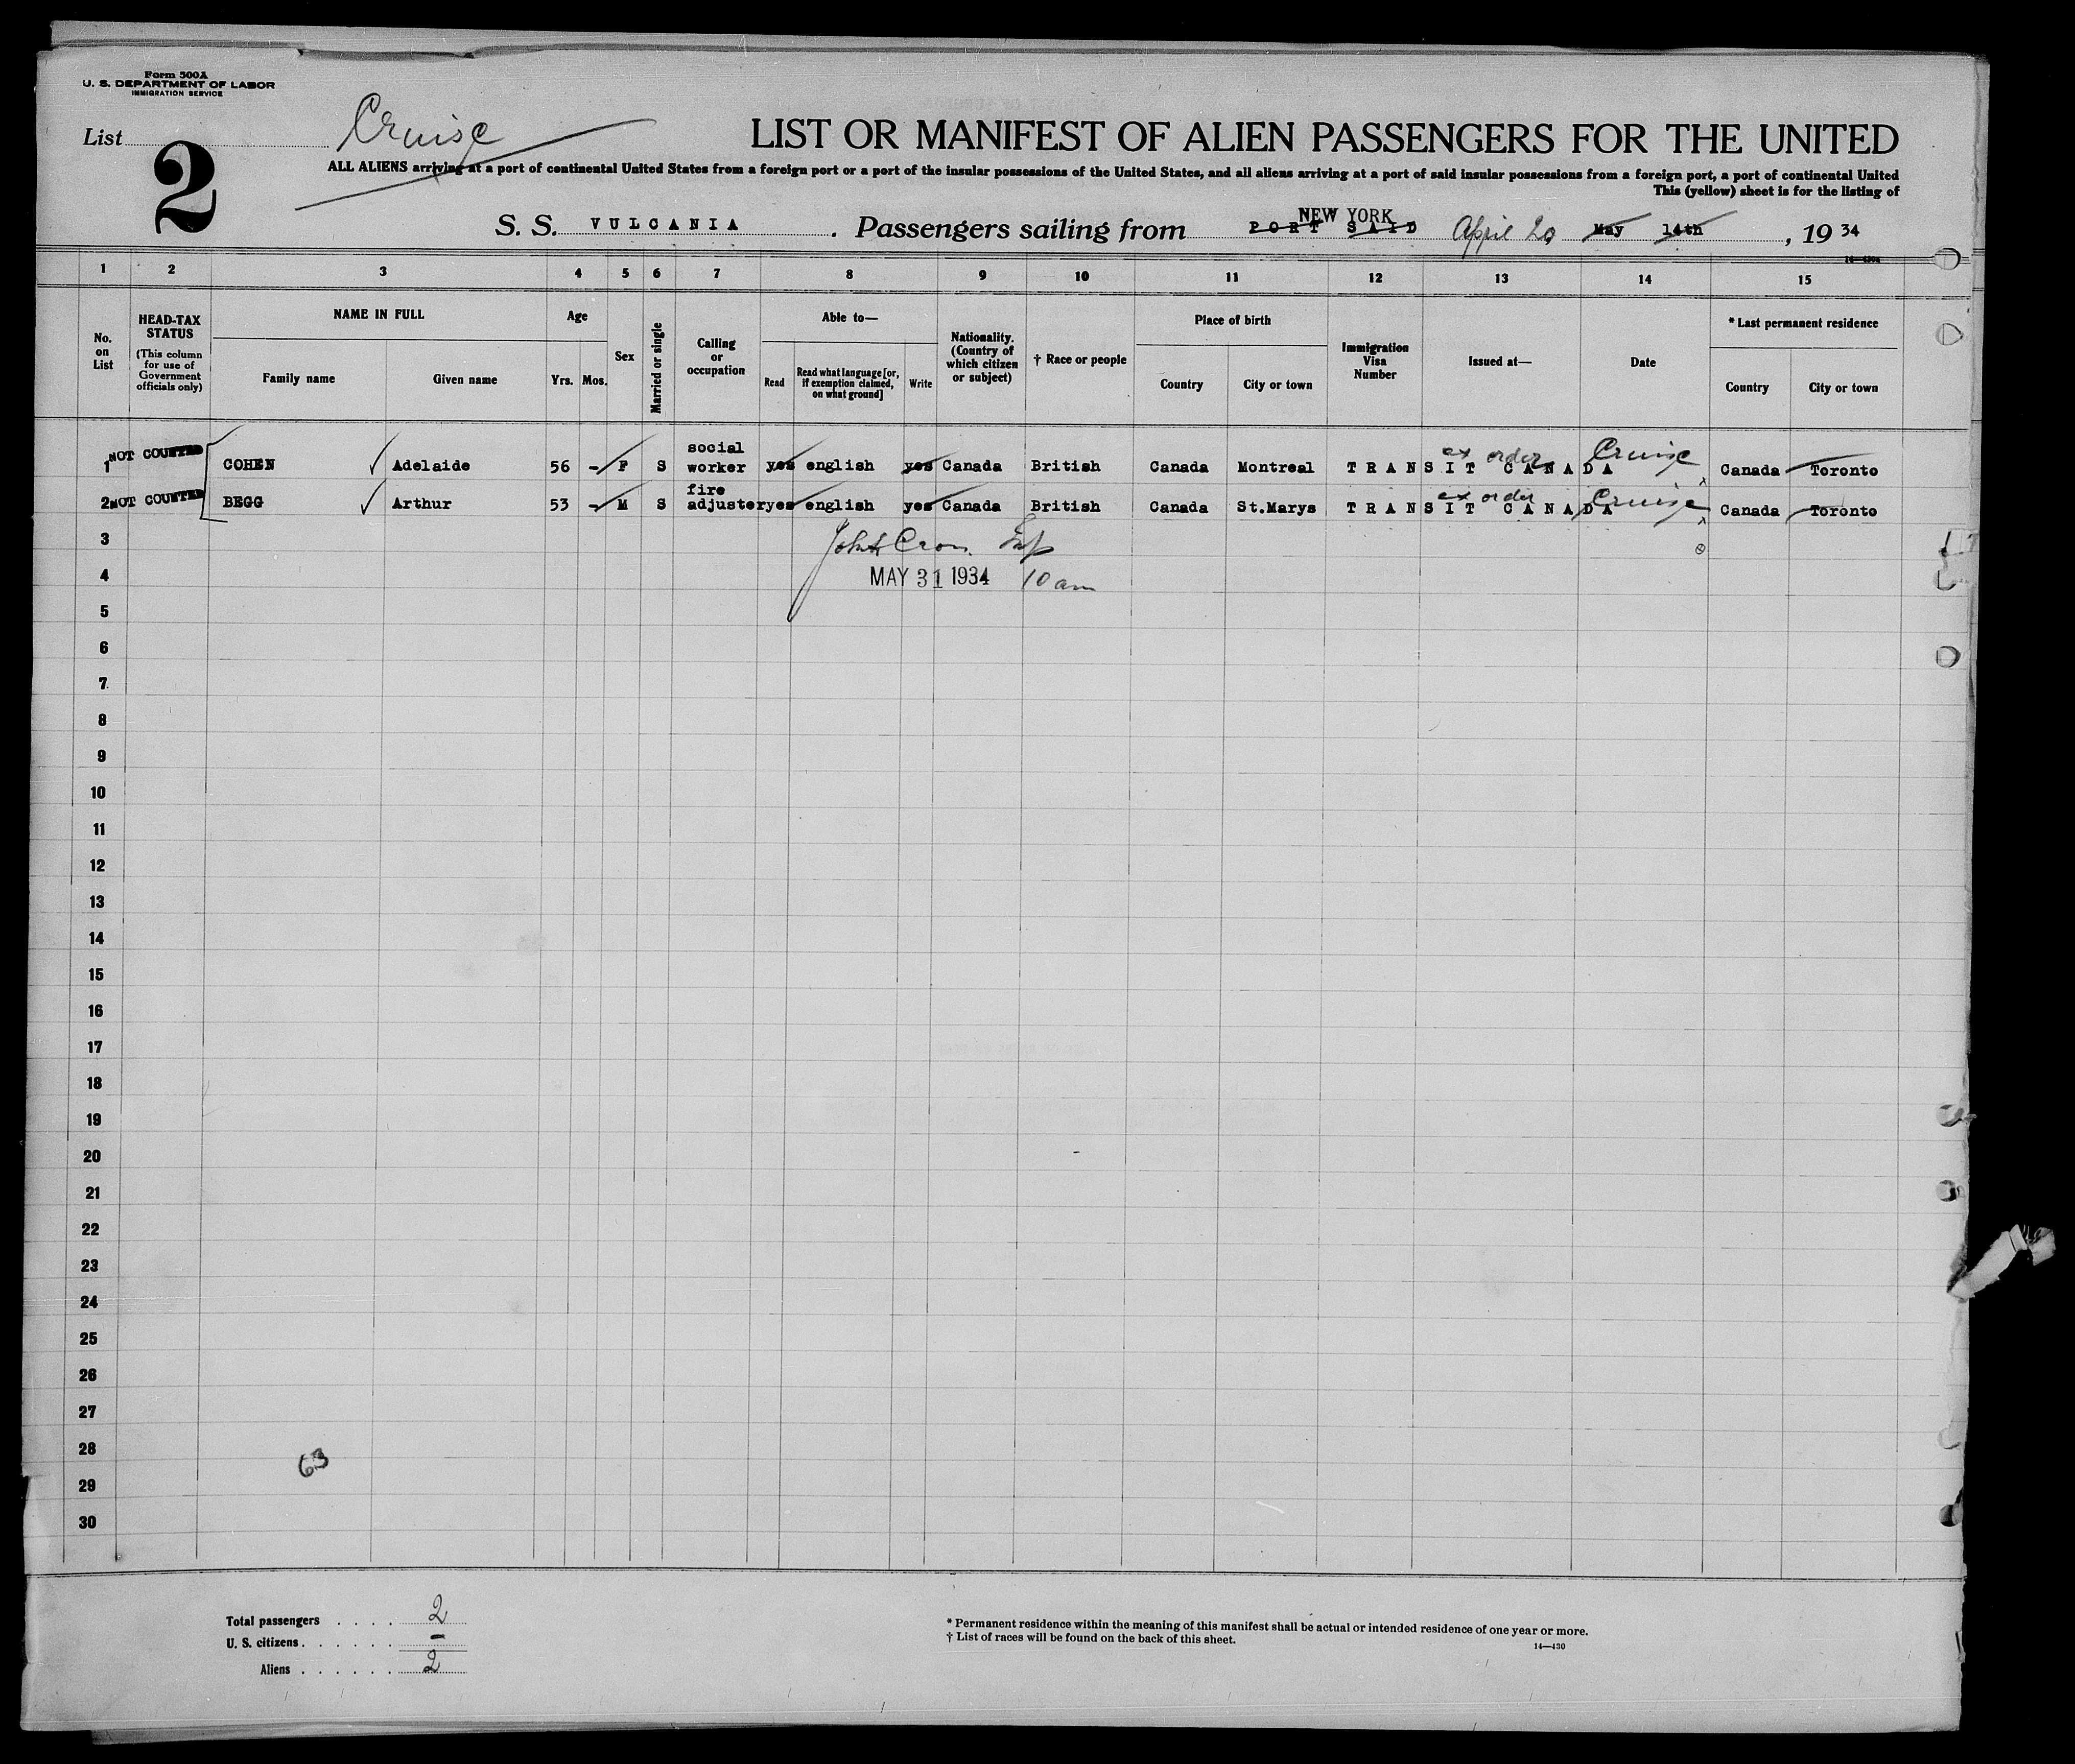 Form 500A
U. S. DEPARTMENT OF LABOR
IMMIGRATION SERVICE
List Cruise
2
LIST OR MANIFEST OF ALIEN PASSENGERS FOR THE UNITED
ALL ALIENS arriving at a port of continental United States from a foreign port or a port of the insular possessions of the United States, and all aliens arriving at a port of said insular possessions from a foreign port, a port of continental United
This (yellow) sheet is for the listing of
NEW YORK
S. S. VULCANIA. Passengers sailing from PORT SAID April 20 May 14th, 19 34
1 2 3 4 5 6 7 8 9 10 11 12 13 14 15
No. on List
HEAD-TAX STATUS
(This column for use of Government officials only)
NAME IN FULL
Family name
Given name
Age
Yrs. Mos.
Sex
Married or single
Calling or occupation
Able to—
Read
Read what language [or, if exemption claimed, on what ground]
Write
Nationality. (Country of which citizen or subject)
† Race or people
Place of birth
Country
City or town
Immigration Visa Number
Issued at—
Date
* Last permanent residence
Country
City or town
1 NOT COUNTED COHEN Adelaide 56 - F S social worker yes english yes Canada British Canada Montreal TRANSIT CANADA ex order Cruise Canada Toronto
2 NOT COUNTED BEGG Arthur 53 - M S fire adjuster yes english yes Canada British Canada St.Marys TRANSIT CANADA ex order Cruise Canada Toronto
3
4 MAY 31 1934 10 am
5
6
7
8
9
10
11
12
13
14
15
16
17
18
19
20
21
22
23
24
25
26
27
28
63
29
30
Total passengers . . . . 2
U. S. citizens . . . . . . -
Aliens . . . . . . 2
* Permanent residence within the meaning of this manifest shall be actual or intended residence of one year or more.
† List of races will be found on the back of this sheet.
14—430